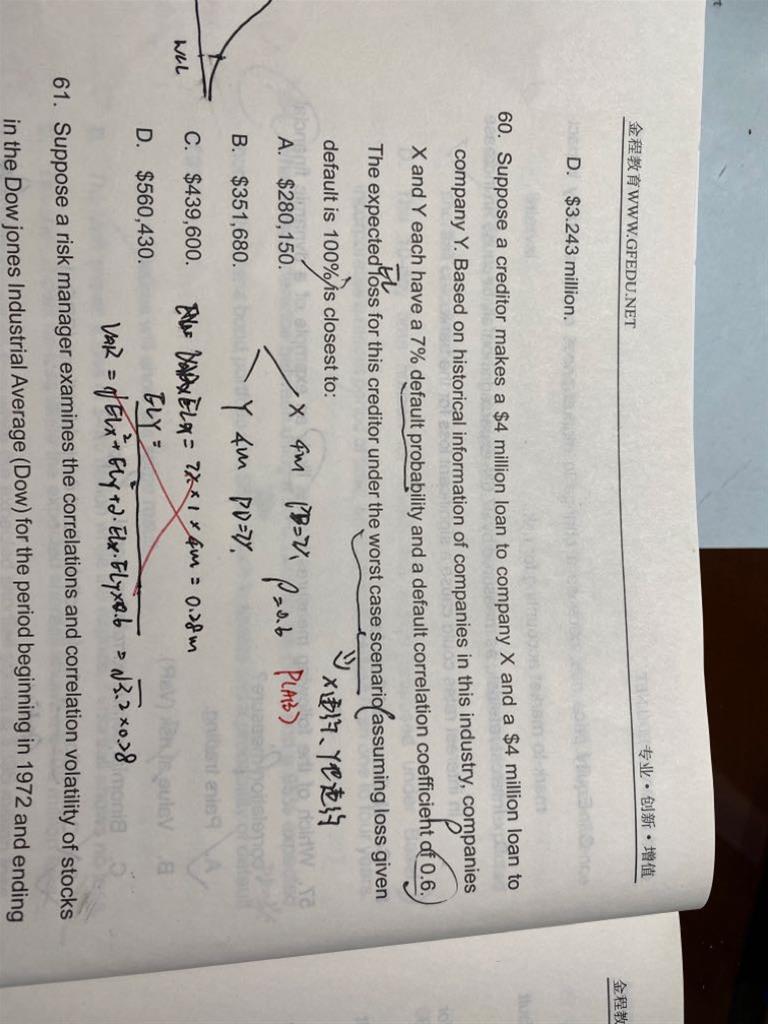 金程教育WWW.GFEDU.NET
专业·创新·增值
D. $3.243 million.
60. Suppose a creditor makes a $4 million loan to company X and a $4 million loan to
company Y. Based on historical information of companies in this industry, companies
ρ
X and Y each have a 7% default probability and a default correlation coefficient of 0.6.
The expected loss for this creditor under the worst case scenario assuming loss given
EL
default is 100% is closest to:
X违约、Y也违约
A. $280,150.
X 4m PD=7%
ρ=0.6
P(AB)
B. $351,680.
Y 4m PD=7%
C. $439,600.
ELx = 7% × 1 × 4m = 0.28m
D. $560,430.
ELY =
VaR = √ELx²+ELy²+2·ELx·ELy×0.6 = √3.2×0.28
WCL
61. Suppose a risk manager examines the correlations and correlation volatility of stocks
in the Dow jones Industrial Average (Dow) for the period beginning in 1972 and ending
金程教